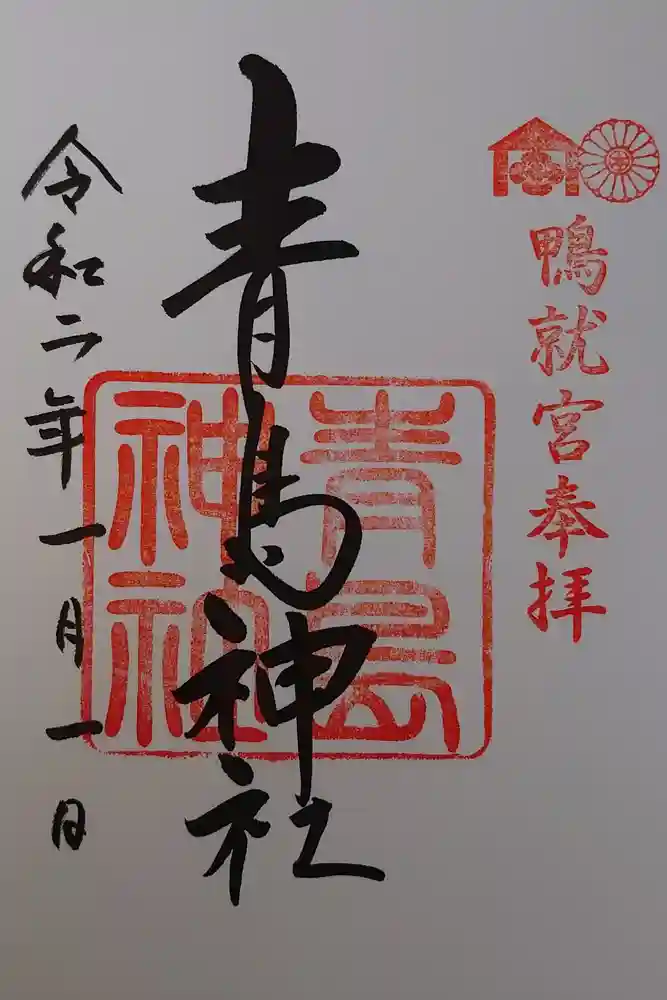 鴨就宮奉拝
青島神社
青島
神社
令和二年一月一日